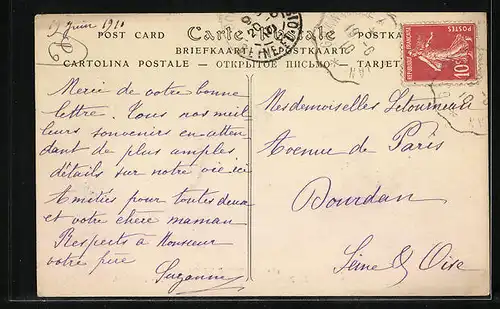 19 Juin 1910
POST CARD Carte Postale POSTKARTE
BRIEFKAART
CARTOLINA POSTALE — ОТКРЫТОЕ ПИСЬМО — TARJET
POSTES
10c
REPUBLIQUE FRANÇAISE
Merci de votre bonne
lettre. Tous nos meil
leurs souvenirs en atten
dant de plus amples
détails sur notre vie ici
Amitiés pour toutes deux
et votre chère maman
Respects à Monsieur
votre père
Suzanne
Mesdemoiselles Letourneur
Avenue de Paris
Dourdan
Seine & Oise